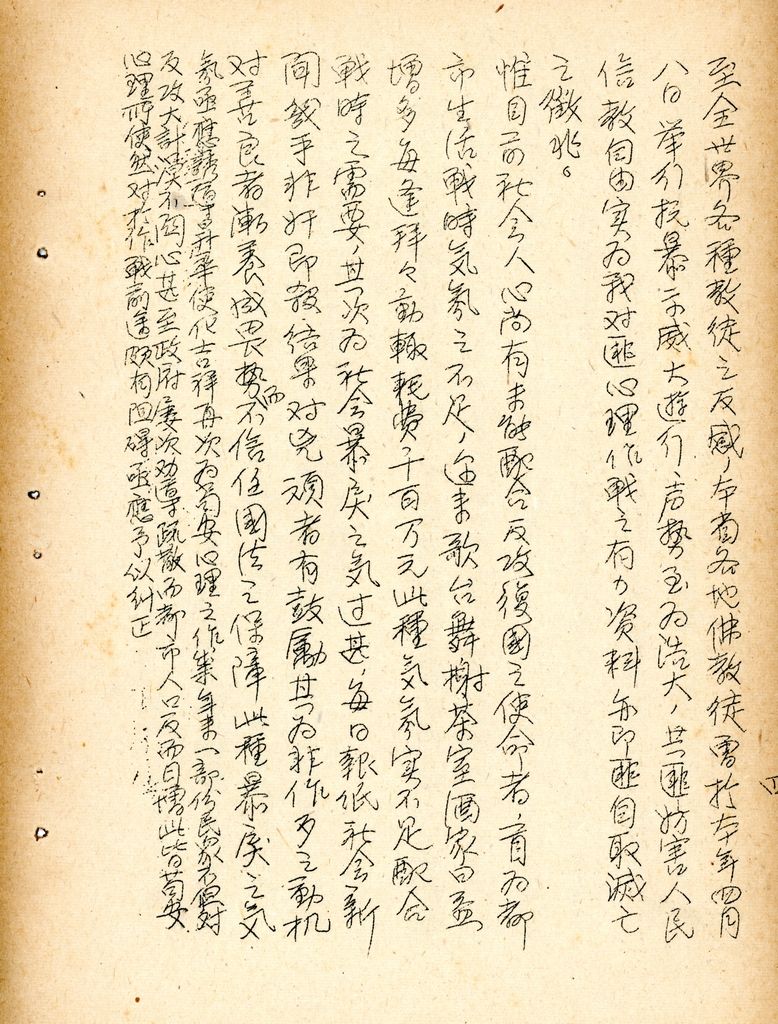 至全世界各種教徒之反感,本省各地佛教徒曾於本年四月
八日举行抗暴示威大遊行,声勢至為浩大,共匪妨害人民
信教自由实為我对匪心理作戰之有力資料亦即匪自取滅亡
之徵兆。
惟目前社会人心尚有未能配合反攻復國之使命者,首為都
市生活戰時気氛之不足,近来歌台舞榭茶室酒家日益
增多每逢拜々動輒耗費千百万元此種気氛实不足配合
戰時之需要,其次為社会暴戾之気过甚,每日報纸社会新
聞幾乎非奸即殺结果对兇頑者有鼓勵其為非作歹之動机
对善良者漸養成畏勢而不信任國法之保障此種暴戾之気
氛亟應使化吉祥再次為苟安心理之作祟年来一部份民众不但对
反攻大計漠不關心甚至政府屡次劝導疏散而都市人口反而日增此皆苟安
心理所使然对於作戰前途頗有阻碍亟應予以糾正
四